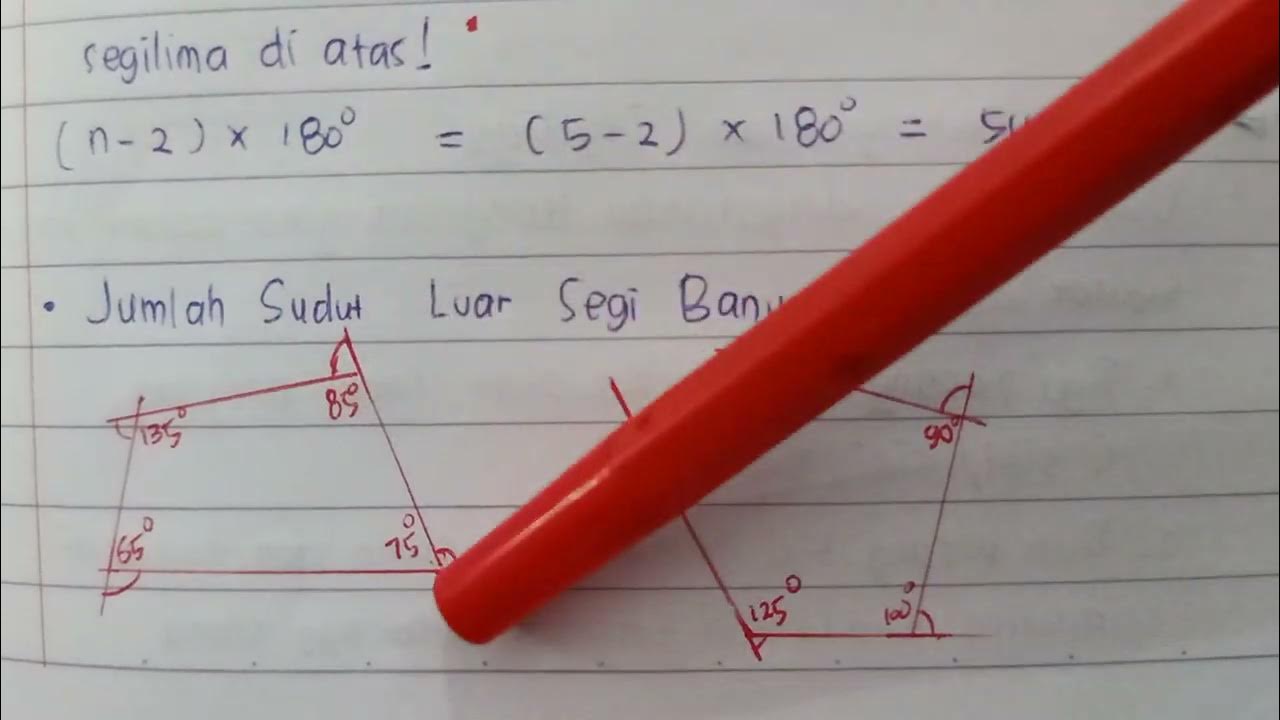 segilima di atas!
(n-2) × 180° = (5-2) × 180° =
• Jumlah Sudut Luar Segi
85°
135°
90°
65°
75°
125°
100°